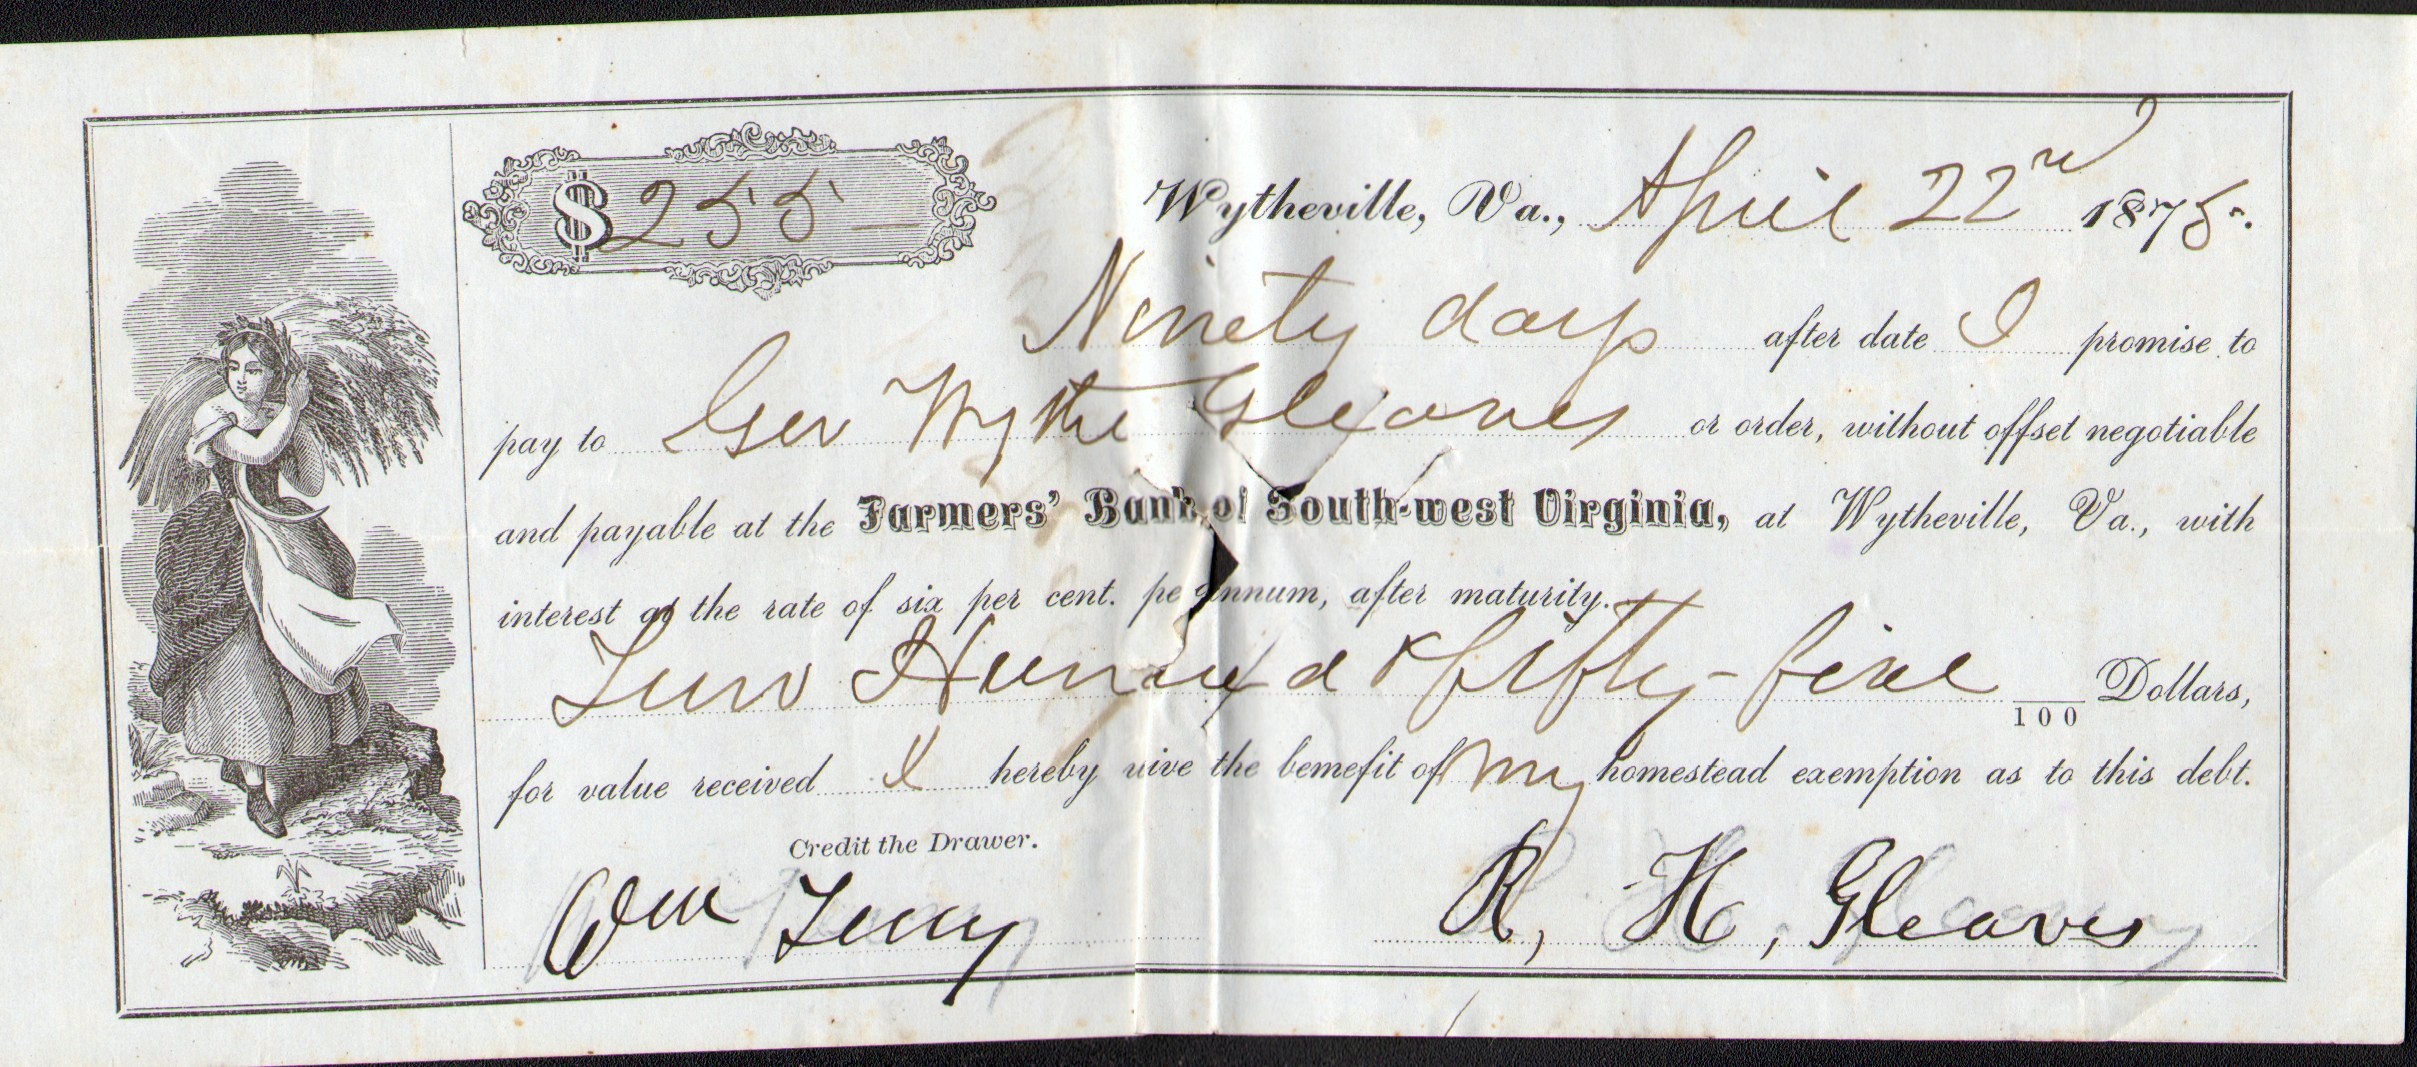 $255—
Wytheville, Va., April 22nd 1875.
Ninety days after date I promise to
pay to Geo Wythe Gleaves or order, without offset negotiable
and payable at the Farmers' Bank of South-west Virginia, at Wytheville, Va., with
interest at the rate of six per cent. pe annum, after maturity.
Two Hundred & fifty-five /100 Dollars,
for value received I hereby wive the bemefit of my homestead exemption as to this debt.
Credit the Drawer.
Wm Terry R, H, Gleaves